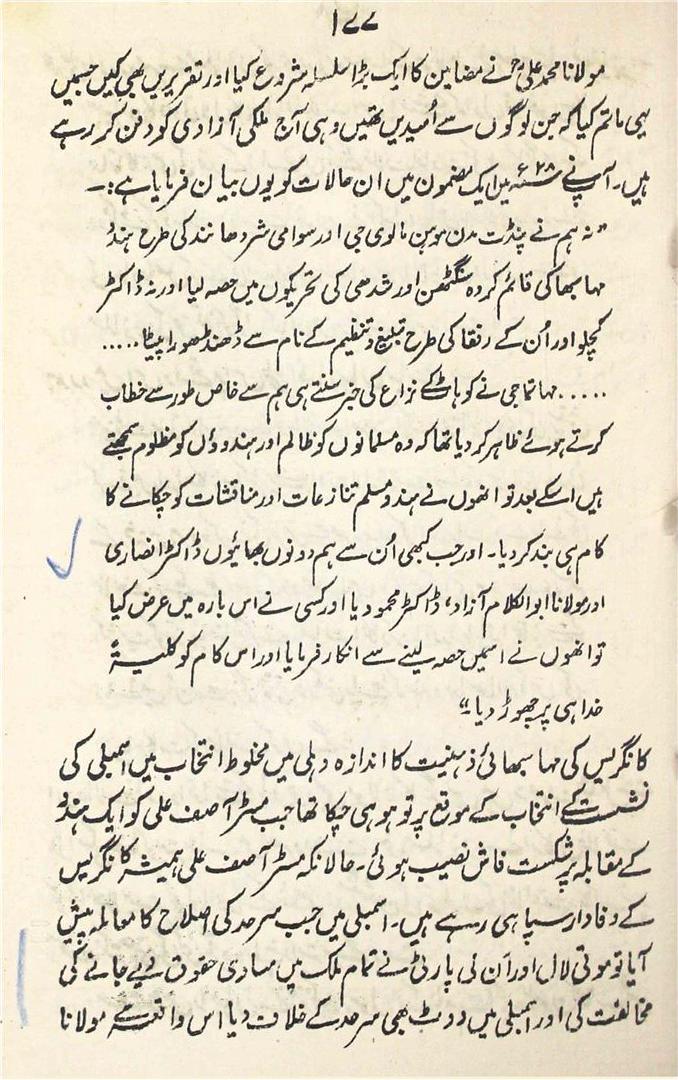 ۱۷۷
مولانا محمد علیؒ نے مضامین کا ایک بڑا سلسلہ شروع کیا اور تقریریں بھی کیں جسمیں
یہی ماتم کیا کہ جن لوگوں سے اُمیدیں تھیں وہی آج ملکی آزادی کو دفن کر رہے
ہیں۔ آپ نے ۲۸ء میں ایک مضمون میں ان حالات کو یوں بیان فرمایا ہے:۔
"نہ ہم نے پنڈت مدن موہن مالوی جی اور سوامی شردھانند کی طرح ہندو
مہا سبھا کی قائم کردہ سنگٹھن اور شدھی کی تحریکوں میں حصہ لیا اور نہ ڈاکٹر
کچلو اور اُن کے رفقا کی طرح تبلیغ و تنظیم کے نام سے ڈھنڈھورا پیٹا.....
..... مہاتما جی نے کوہاٹ کے نزاع کی خبر سنتے ہی ہم سے خاص طور سے خطاب
کرتے ہوئے ظاہر کر دیا تھا کہ وہ مسلمانوں کو ظالم اور ہندوؤں کو مظلوم سمجھتے
ہیں اسکے بعد تو انھوں نے ہندو مسلم تنازعات اور مناقشات کو چکانے کا
کام ہی بند کر دیا۔ اور جب کبھی اُن سے ہم دونوں بھائیوں ڈاکٹر انصاری
اور مولانا ابوالکلام آزاد، ڈاکٹر محمود یا اور کسی نے اس بارہ میں عرض کیا
تو انھوں نے اسمیں حصہ لینے سے انکار فرمایا اور اس کام کو کلیۃً
خدا ہی پر چھوڑ دیا۔"
کانگریس کی مہا سبھائی ذہنیت کا اندازہ دہلی میں مخلوط انتخاب میں اسمبلی کی
نشست کے انتخاب کے موقع پر تو ہو ہی چکا تھا جب مسٹر آصف علی کو ایک ہندو
کے مقابلہ پر شکست فاش نصیب ہوئی۔ حالانکہ مسٹر آصف علی ہمیشہ کانگریس
کے وفادار سپاہی رہے ہیں۔ اسمبلی میں جب سرحد کی اصلاح کا معاملہ پیش
آیا تو موتی لال اور اُن کی پارٹی نے تمام ملک میں مساوی حقوق دیے جانے کی
مخالفت کی اور اسمبلی میں ووٹ بھی سرحد کے خلاف دیا اس واقعہ سے مولانا